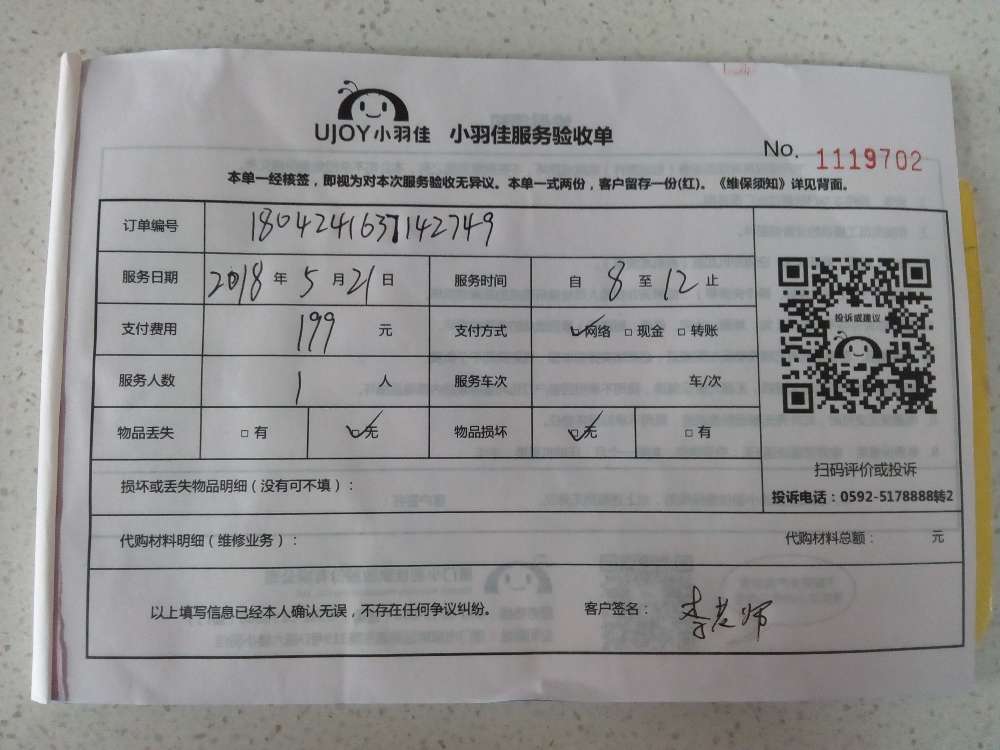 UJOY小羽佳 小羽佳服务验收单
No. 1119702
本单一经核签，即视为对本次服务验收无异议。本单一式两份，客户留存一份(红)。《维保须知》详见背面。
订单编号 1804241637142749
服务日期 2018 年 5 月 21 日 服务时间 自 8 至 12 止
支付费用 199 元 支付方式 ☑网络 □ 现金 □ 转账
服务人数 1 人 服务车次 车/次
物品丢失 □ 有 ☑无 物品损坏 ☑无 □ 有
投诉或建议
扫码评价或投诉
投诉电话：0592-5178888转2
损坏或丢失物品明细（没有可不填）：
代购材料明细（维修业务）： 代购材料总额： 元
以上填写信息已经本人确认无误，不存在任何争议纠纷。 客户签名： 李老师